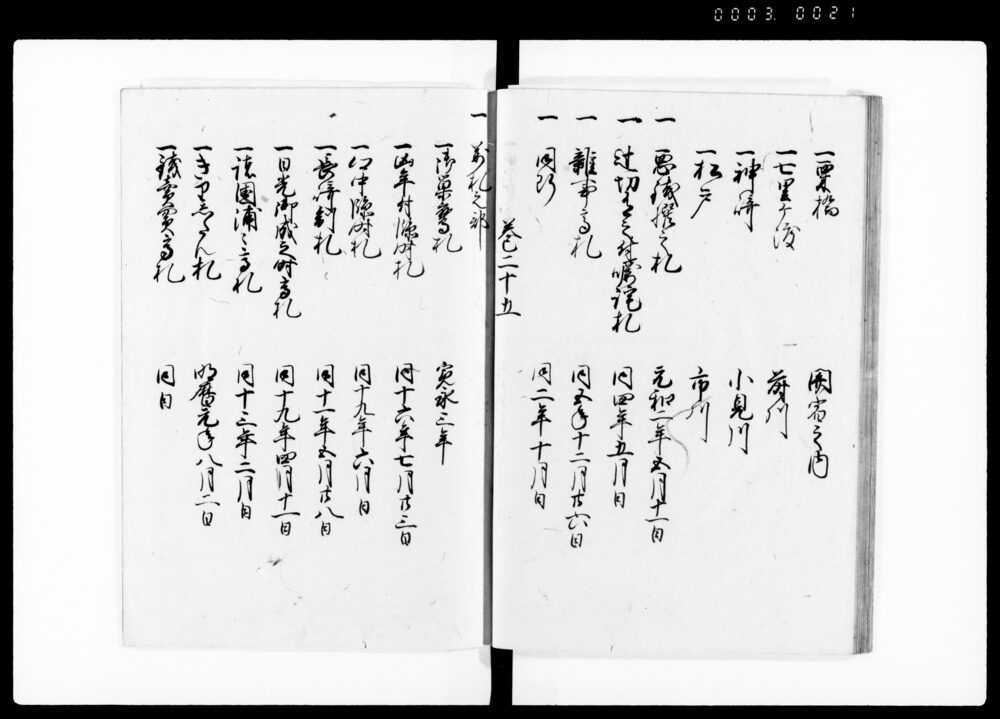 0003. 0021
一栗橋 関宿之内
一七里ケ渡 
一神崎 小見川
一松戸 市川
一 悪銭撰之札 元和二年五月十一日
一 辻切有之付嘱託札 同四年五月日
一 雑事高札 同五年十二月廿六日
一 同断 同二年十月日
巻二十五
一 高札之部
一御巣鷹札 寛永三年
一凶年付 札 同十六年七月廿三日
一 札 同十九年六月日
一長崎制札 同十一年五月廿八日
一日光御成之時高札 同十九年四月十一日
一諸国浦々高札 同十三年二月日
一きりしたん札 明暦元年八月二日
一銭売買高札 同日